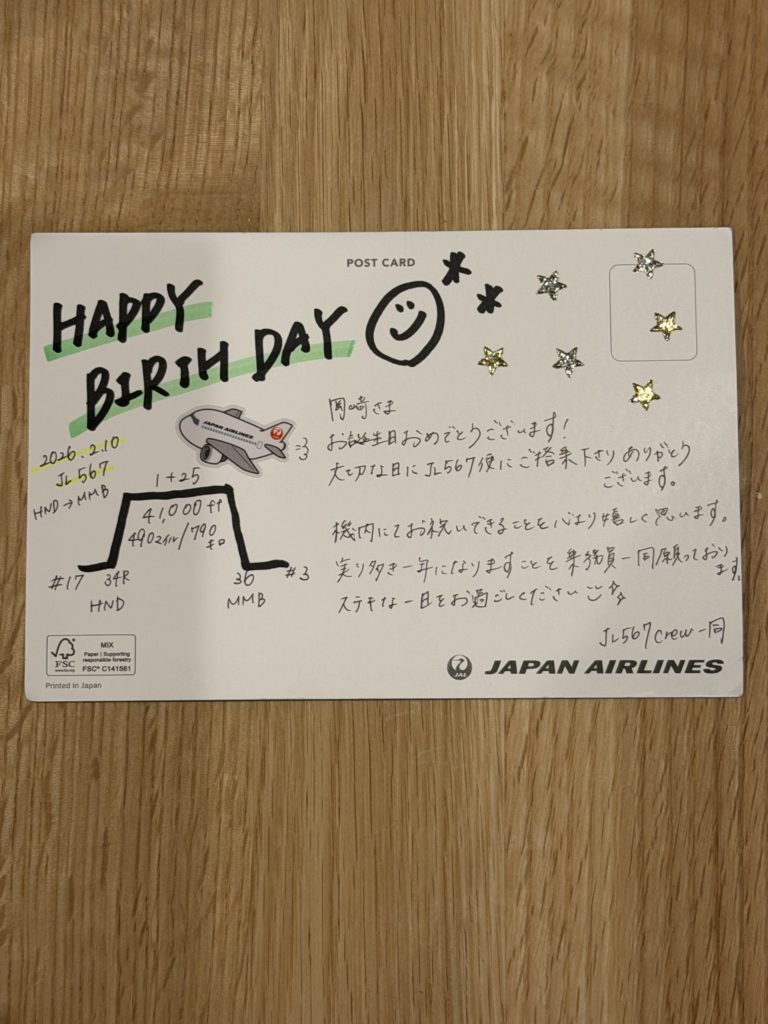 POST CARD
HAPPY
BIRTHDAY
JAPAN AIRLINES
2026.2.10
JL567
HND→MMB
1+25
41,000ft
490マイル/790キロ
#17 34R 36 #3
HND MMB
岡崎さま
お誕生日おめでとうございます!
大切な日にJL567便にご搭乗下さりありがとう
ございます。
機内にてお祝いできることを心より嬉しく思います。
実り多き一年になりますことを乗務員一同願っております。
ステキな一日をお過ごしください
JL567crew一同
FSC
www.fsc.org
MIX
Paper | Supporting
responsible forestry
FSC® C141561
Printed in Japan
JAL
JAPAN AIRLINES